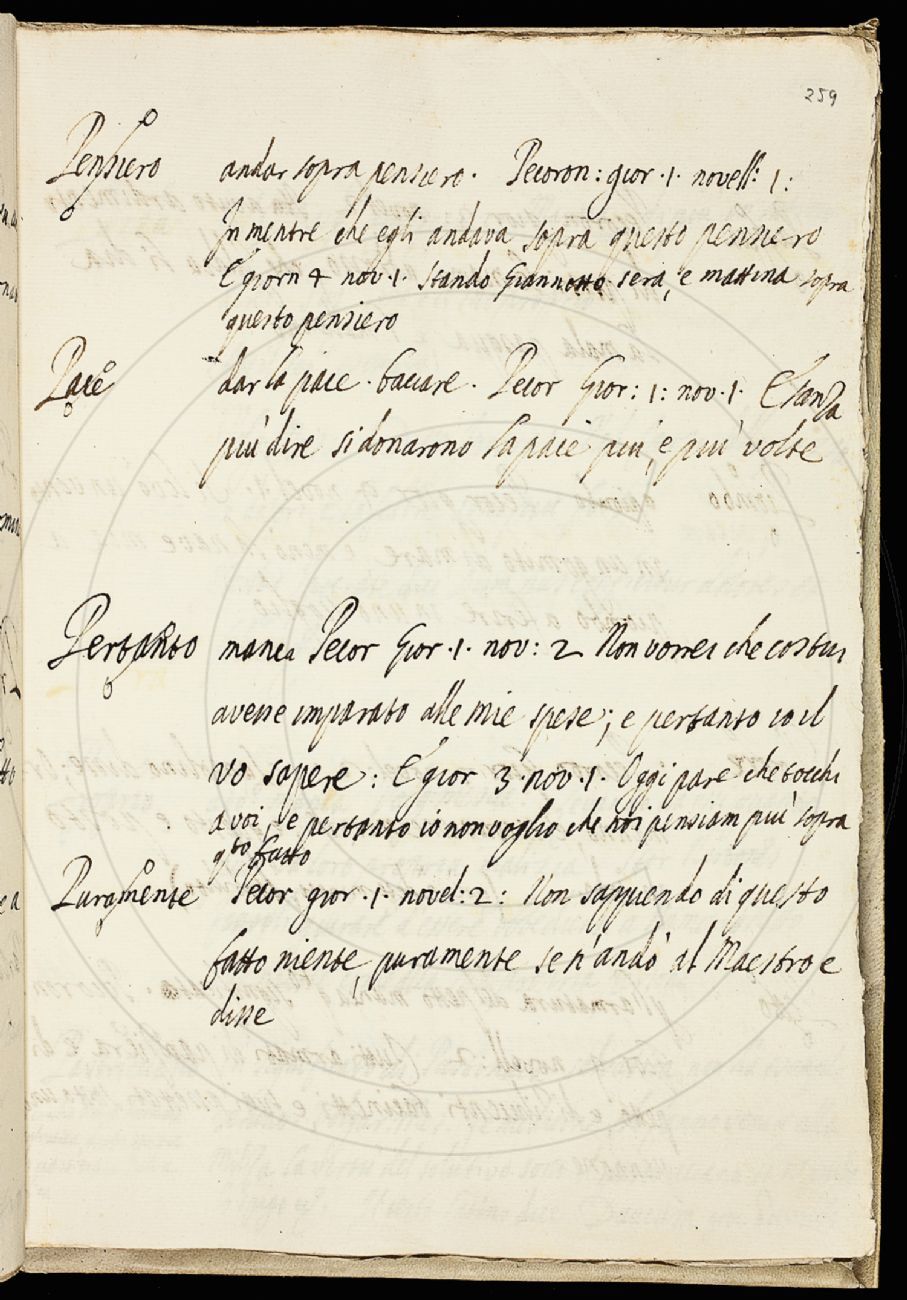 259
Pensiero andar sopra pensiero. Pecoron: gior. 1. novell: 1:
In mentre che egli andava sopra questo pensiero
E giorn 4 nov. 1. Stando Giannetto sera, e mattina sopra
questo pensiero
Pace dar la pace. baciare. Pecor Gior: 1: nov. 1. E sanza
più dire si donarono la pace più, e più volte
Pertanto manca Pecor Gior. 1. nov: 2 Non vorrei che costui
avesse imparato alle mie spese; e pertanto io il
vo sapere: E gior 3. nov. 1. Oggi pare che tocchi
a voi, e pertanto io non voglio che noi pensiam più sopra
qto fatto
Puramente Pecor gior. 1. novel: 2: Non sappiendo di questo
fatto niente, puramente se n'andò al Maestro e
disse